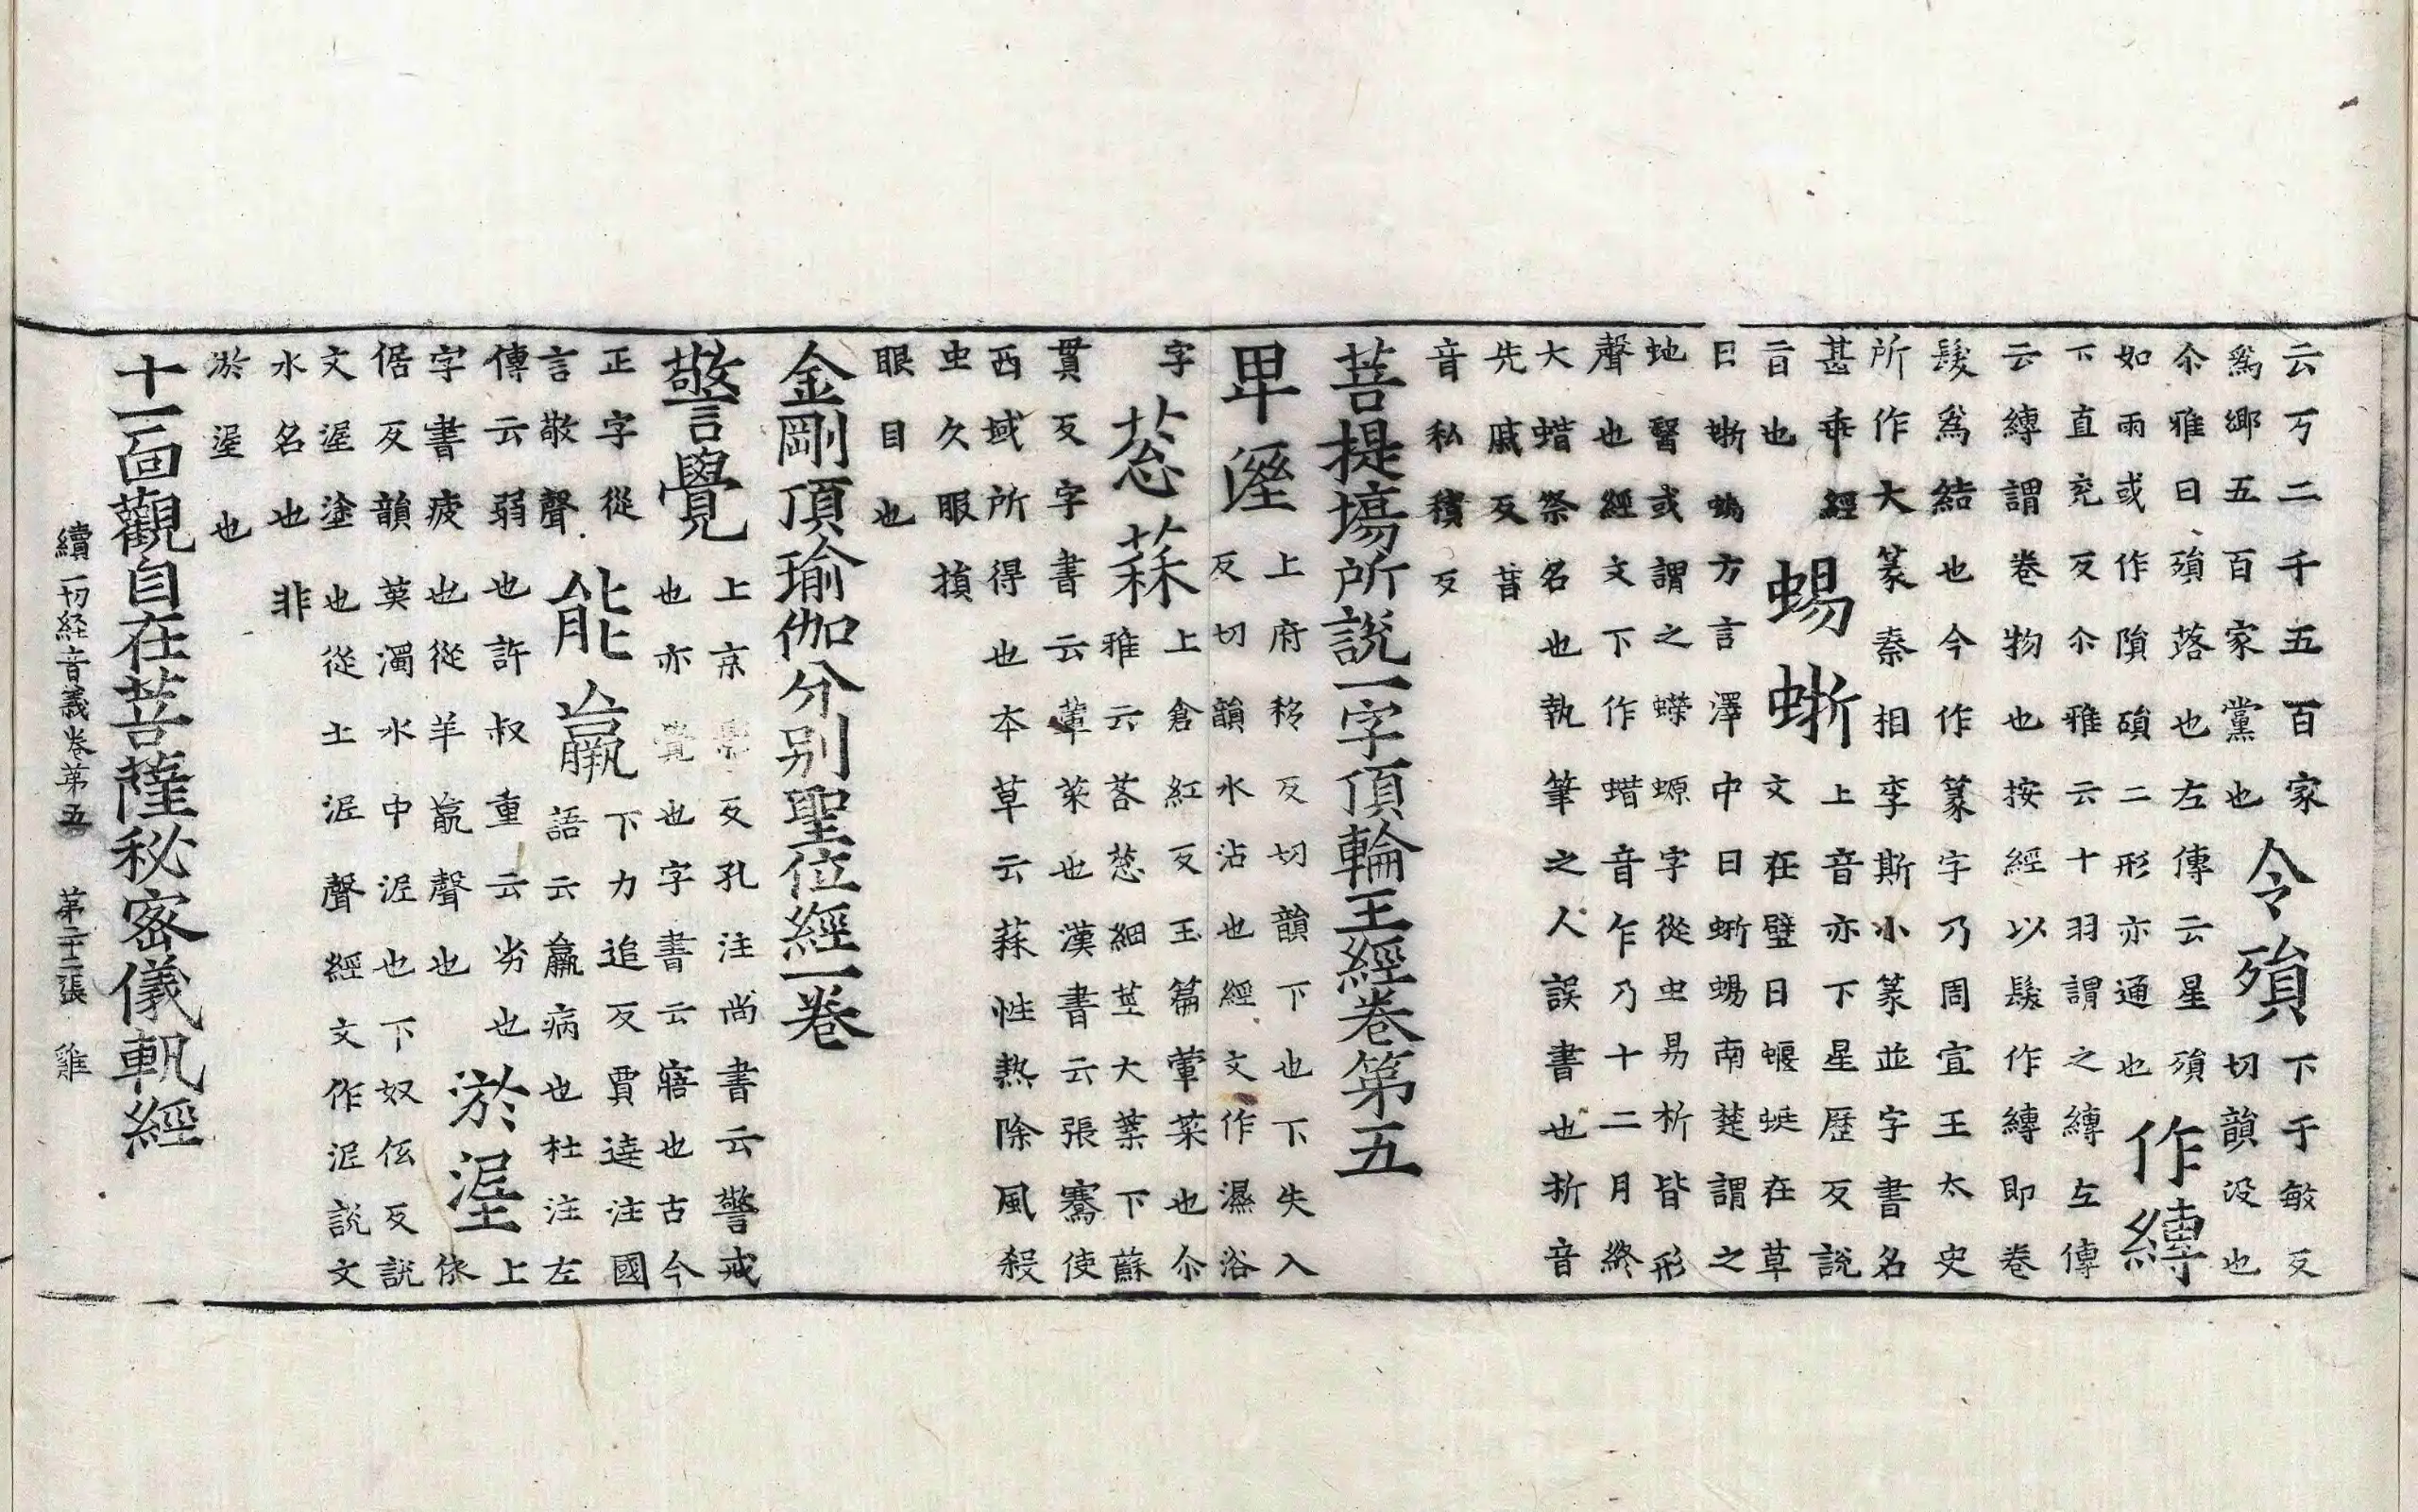 云丂二千五百家
為鄉五百家黨也
令殞
下于敏反
切韻没也
尒雅曰殞落也左傳云星殞
如雨或作隕磒二形亦通也
作縳
下直兖反尒雅云十羽謂之縳左傳
云縳謂卷物也按經以髮作縳即卷
髮為結也今作篆字乃周宣王太史
所作大篆秦相李斯小篆並字書名
甚乖經
旨也
蜴蜥
上音亦下星歷反説
文在壁曰蝘蜓在草
曰蜥蜴方言澤中曰蜥蜴南楚謂之
虵毉或謂之蠑螈字從虫易析皆形
聲也經文下作蜡音乍乃十二月終
大蜡祭名也執筆之人誤書也折音
先戚反昔
音私積反
菩提塲所説一字頂輪王經卷第五
卑溼
上府移反切韻下也下失入
反切韻水沾也經文作濕浴
字
葱蒜
上倉紅反玉篇葷菜也尒
雅云茖葱細莖大葉下蘇
貫反字書云葷菜也漢書云張騫使
西域所得也本草云蒜性熱除風殺
虫久眼損
眼目也
金剛頂瑜伽分别聖位經一卷
警覺
上京影反孔注尚書云警戒
也亦覺也字書云寤也古今
正字從
言敬聲
能羸
下力追反賈逵注國
語云羸病也杜注左
傳云弱也許叔重云劣也
字書疲也從羊𣎆聲也
淤埿
上
依
倨反韻英濁水中泥也下奴伍反説
文埿塗也從土泥聲經文作泥説文
水名也非
淤埿也
十一面觀自在菩薩秘密儀軌經
續一切経音義卷第五 第二十二張 雞